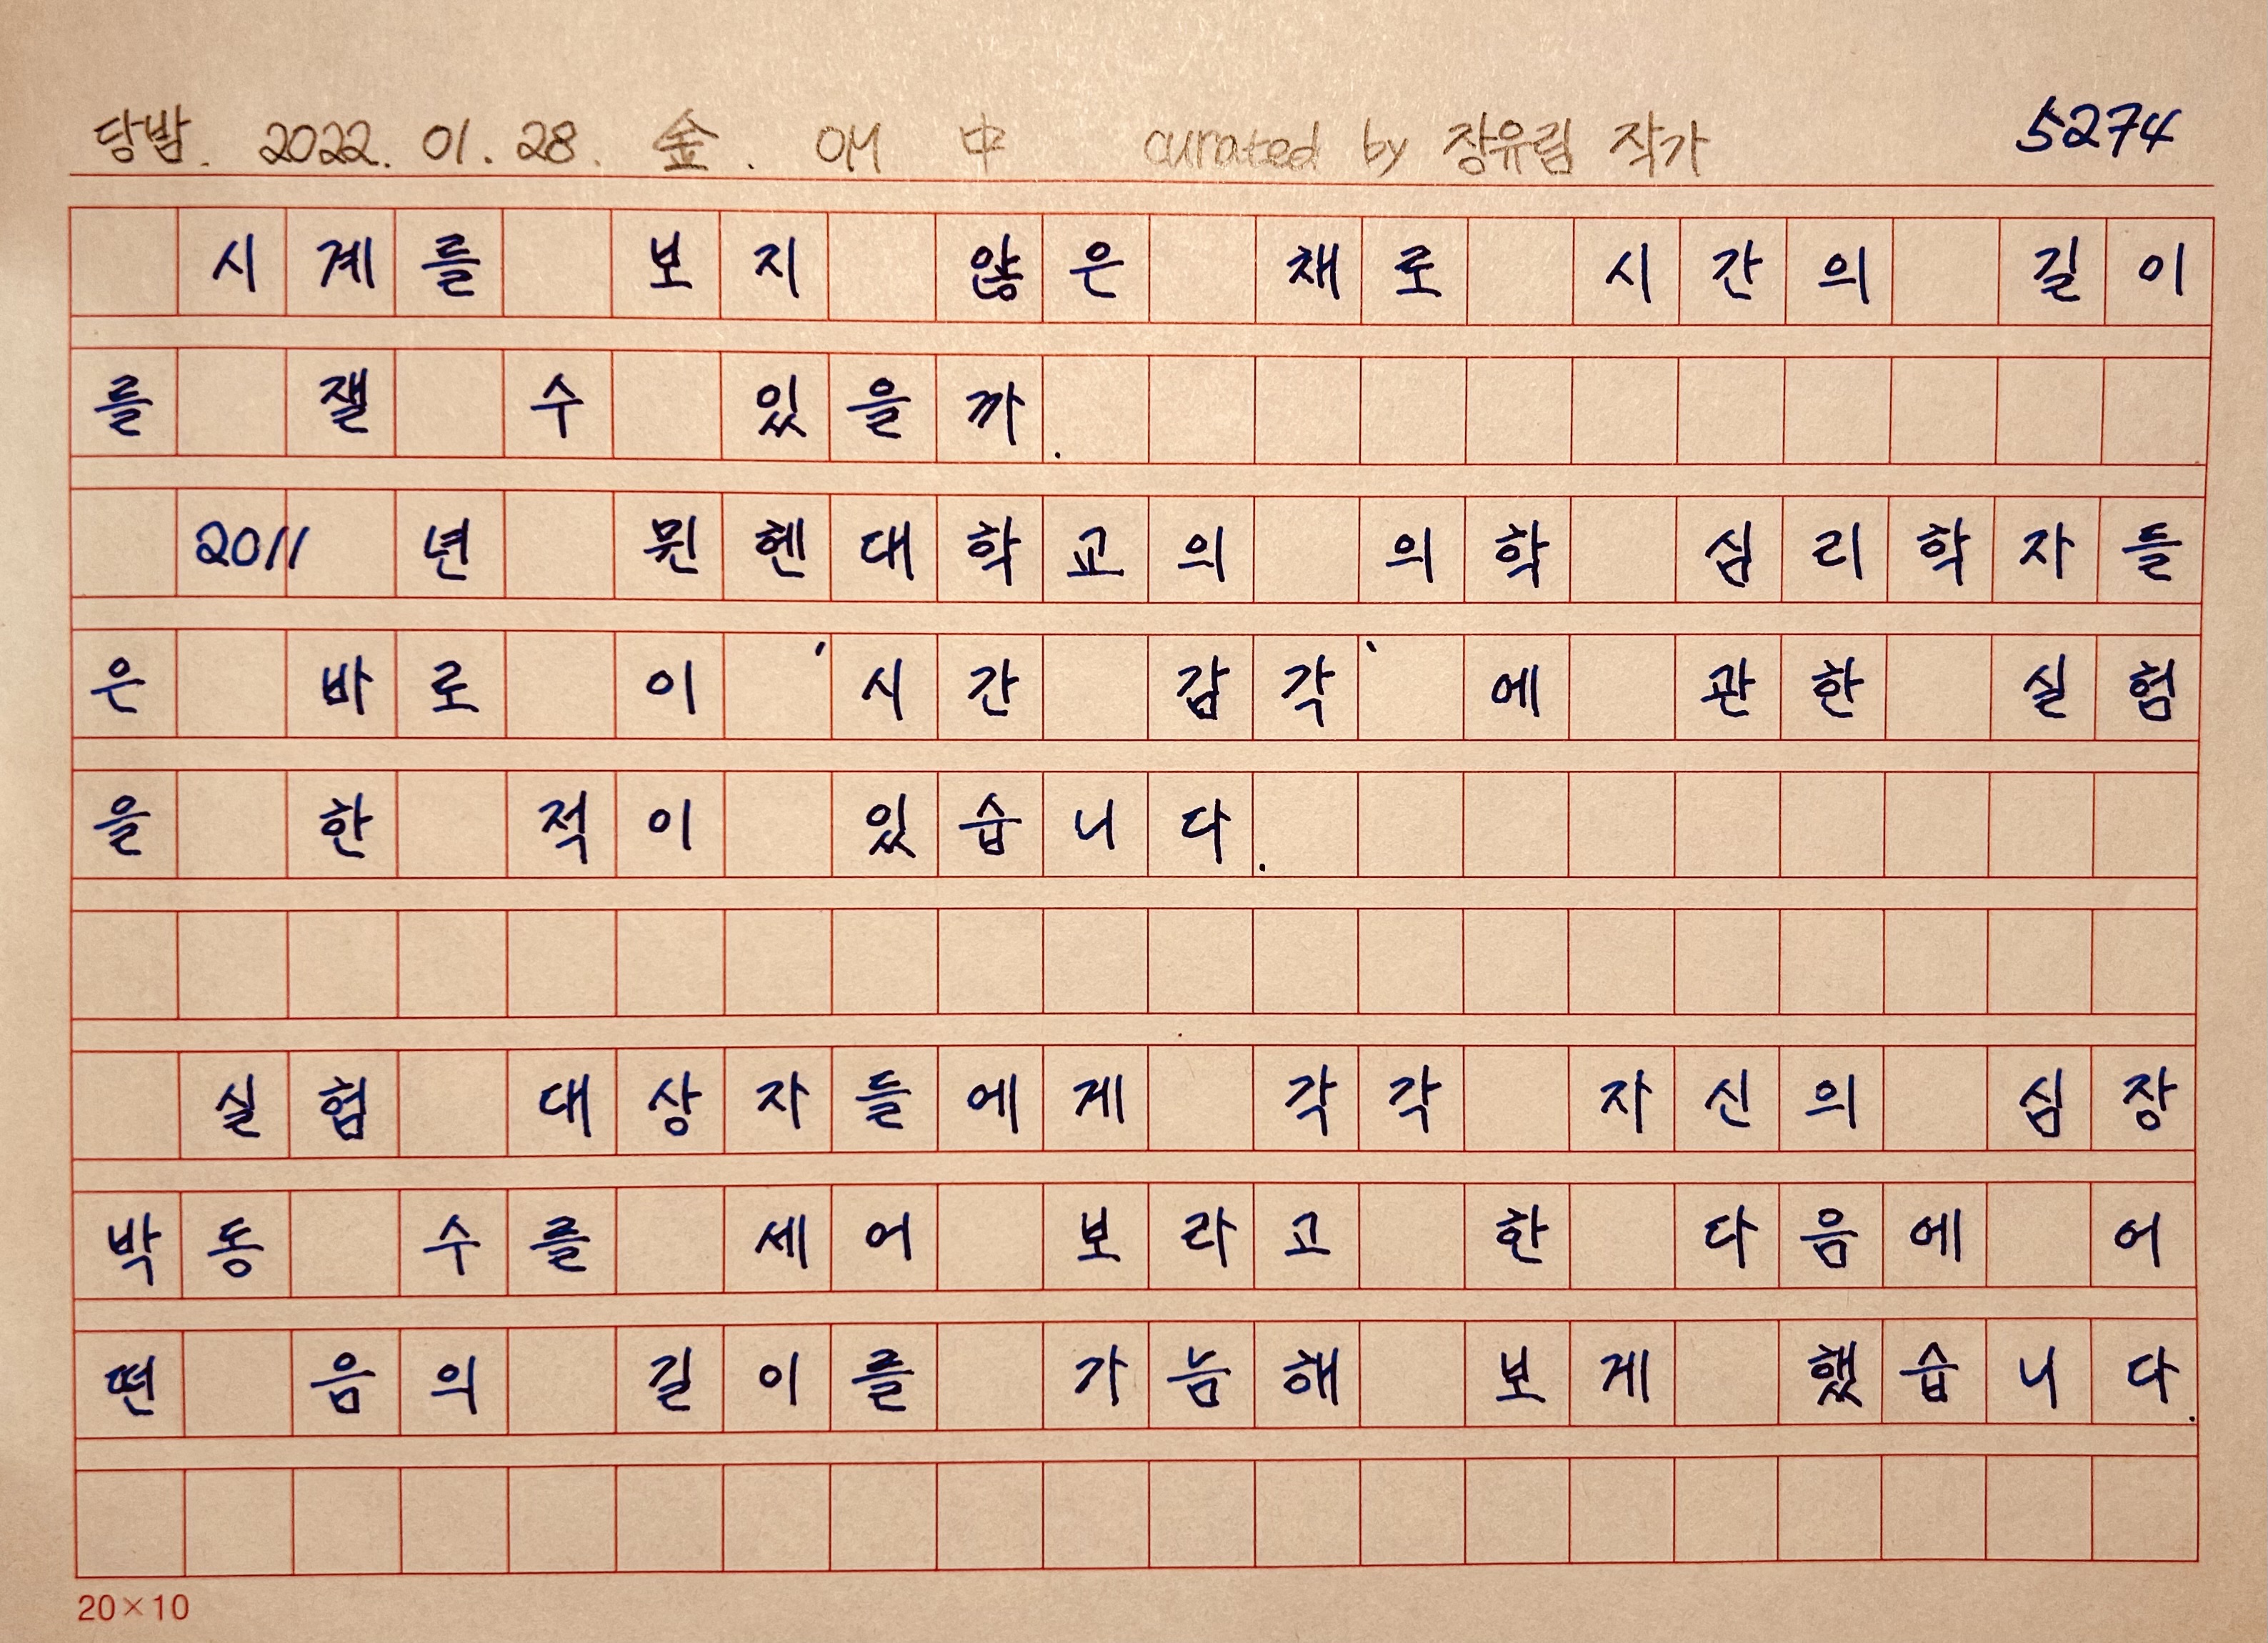 당밤. 2022. 01. 28. 金. 야 中 curated by 장유림 작가 5274
시계를 보지 않은 채로 시간의 길이
를 잴 수 있을까.
2011년 뮌헨대학교의 의학 심리학자들
은 바로 이 '시간 감각'에 관한 실험
을 한 적이 있습니다.
실험 대상자들에게 각각 자신의 심장
박동 수를 세어 보라고 한 다음에 어
떤 음의 길이를 가늠해 보게 했습니다.
20×10